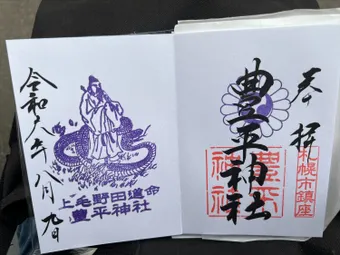 奉拝
札幌市鎮座
豊平神社
豊平
神社
令和六年八月九日
上毛野田道命
豊平神社